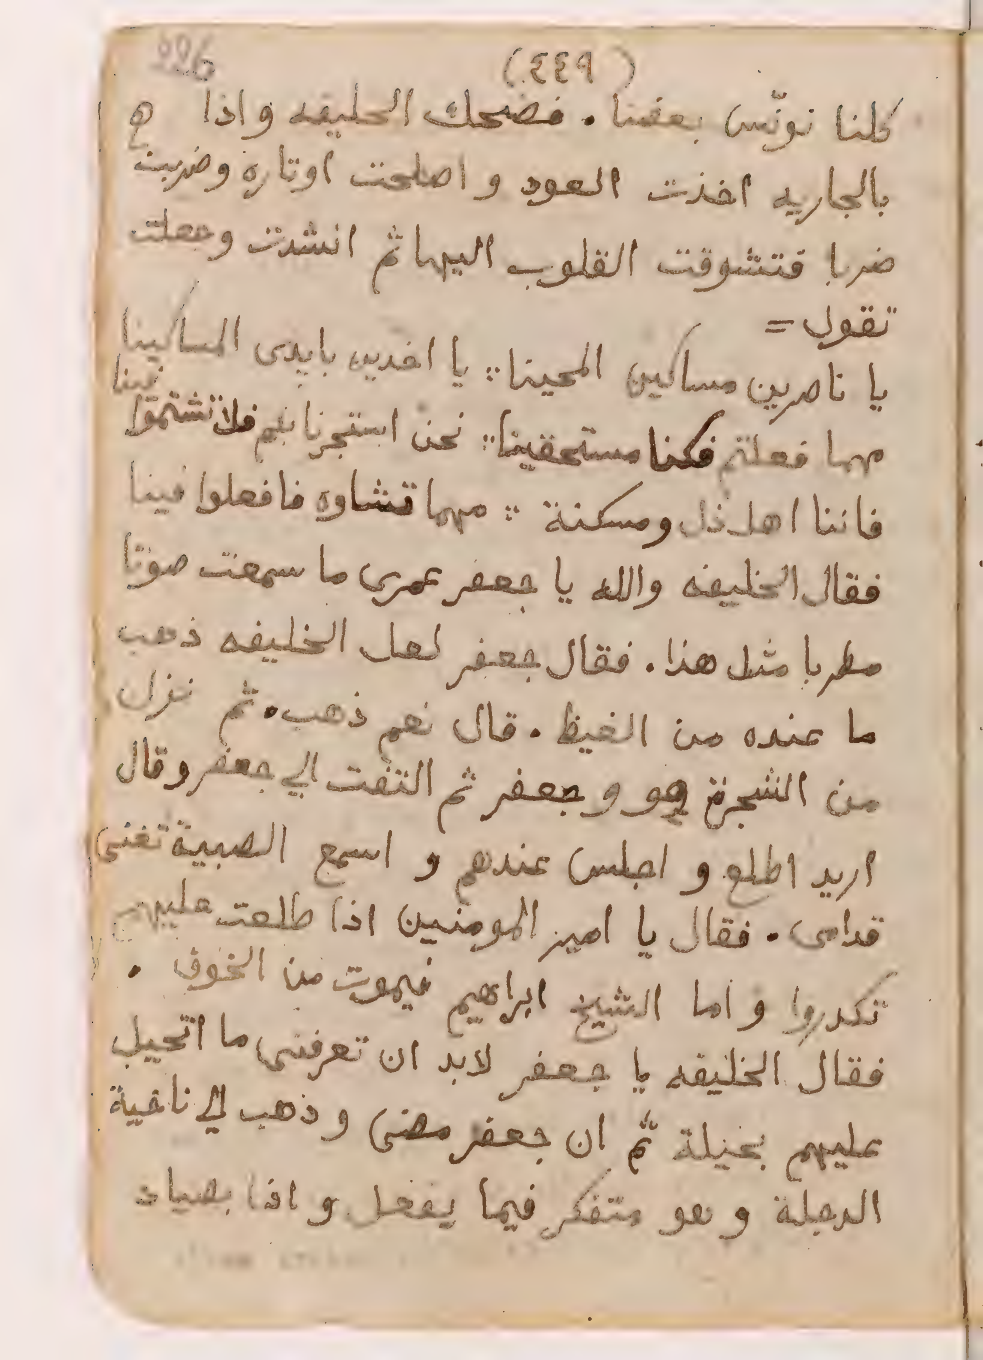 226
(٤٤٩)
كلنا نونّس بعضنا . فضحك الخليفه واذا
بالجاريه اخذت العود و اصلحت اوتاره وضربت
ضربا فتشوقت القلوب اليها ثم انشدت وجعلت
تقول =
يا ناصرين مساكين المحبينا :: يا اخدين بايدى المساكينا
مهما فعلتم فكنا مستحقينا :: نحن استجرنا بكم فلا تشتموا فينا
فاننا اهل ذل ومسكنة :: مهما تشاوه فافعلوا فينا
فقال الخليفه والله يا جعفر عمرى ما سمعت صوتا
مطربا مثل هذا . فقال جعفر لعل الخليفه ذهب
ما عنده من الغيظ . قال نعم ذهب . ثم نزل
من الشجرة هو و جعفر ثم التفت الي جعفر وقال
اريد اطلع و اجلس عندهم و اسمع الصبية تغنى
قدامى . فقال يا امير المومنين اذا طلعت عليهم
تكدروا و اما الشيخ ابراهيم فيموت من الخوف .
فقال الخليفه يا جعفر لابد ان تعرفنى ما اتحيل
عليهم بحيلة ثم ان جعفر مضى و ذهب الي ناحية
الدجلة و هو متفكر فيما يفعل و اذا بصياد